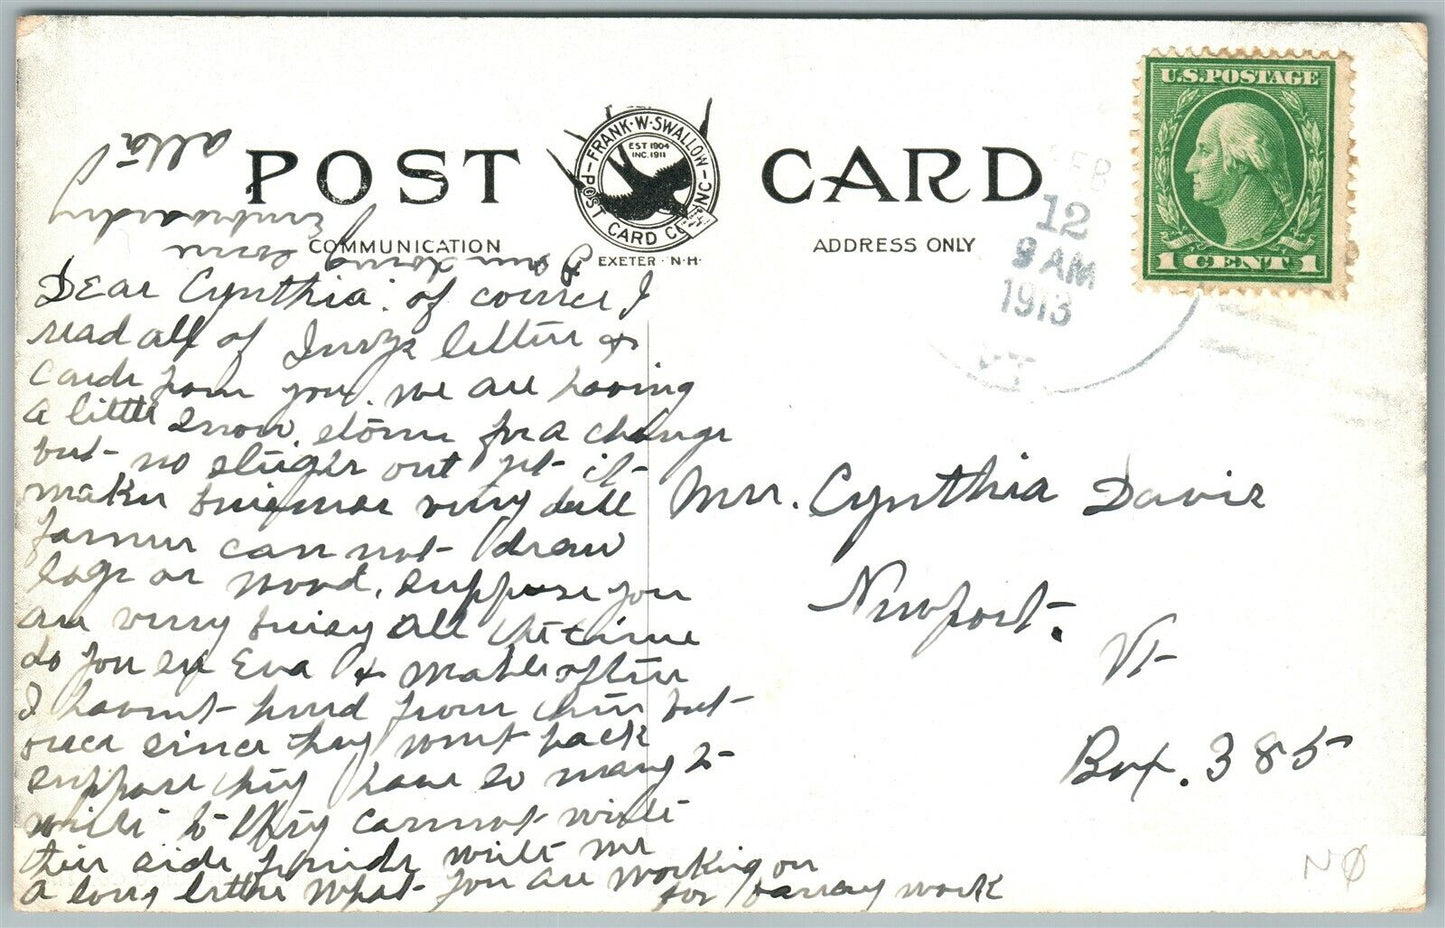 POST CARD
FRANK·W·SWALLOW
POST CARD CO. INC.
EST 1904
INC. 1911
EXETER·N·H·
COMMUNICATION
ADDRESS ONLY
U.S. POSTAGE
1 CENT 1
FEB
12
9 AM
1913
VT
Dear Cynthia: of course I
read all of letters &
Cards from you. we are having
a little Snow. storm for a change
but no out yet it
makes very dull
farmers can not draw
logs or wood. suppose you
are very busy all the time
do you see Eva & Mable often
I havent heard from them but
once since they went back
suppose they have so many to
write to they cannot write
their side friends write me
a long letter what you are working on
for fancy work
I am doing some
Embroidry
Mrs. Cynthia Davis
Newport.
Vt
Box. 385
NØ